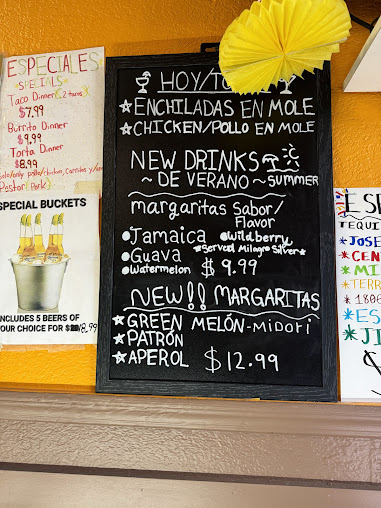 ESPECIALES
*SPECIALS*
Taco Dinner (2 tacos)
$7.99
Burrito Dinner
$9.99
Torta Dinner
$8.99
Pastor (Pork)
SPECIAL BUCKETS
INCLUDES 5 BEERS OF
YOUR CHOICE FOR 18.99
HOY/
★ENCHILADAS EN MOLE
★CHICKEN/POLLO EN MOLE
NEW DRINKS
~ DE VERANO ~ SUMMER
margaritas Sabor/
Flavor
•Jamaica •Wildberry
•Guava *Served Milagro Silver*
•Watermelon $9.99
NEW!! MARGARITAS
★GREEN MELÓN-MIDORI
★PATRÓN
★APEROL $12.99
ESP
TEQUI
★JOSE
★CEN
★MI
★TERR
★1800
★ES
★JI
$